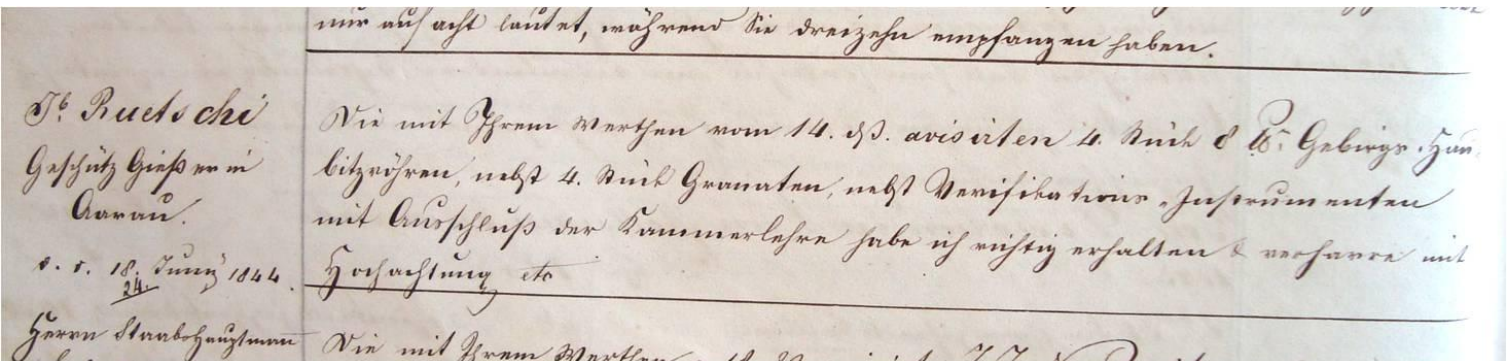 nur auf acht lautet, während Sie dreizehn empfangen haben.
Jb Ruetschi
Geschütz Gießer in
Aarau.
d. d. 18. Juny 1844.
24.
Die mit Ihrem Werthen vom 14. dß. avisirten 4. Stück 8 ℔r Gebirgs-Hau-
bitzröhren, nebst 4. Stück Granaten, nebst Verifikations-Instrumenten
mit Ausschluß der Kammerlehre habe ich richtig erhalten & verharre mit
Hochachtung etc
Herrn Staabshauptmann
Die mit Ihrem Werthen